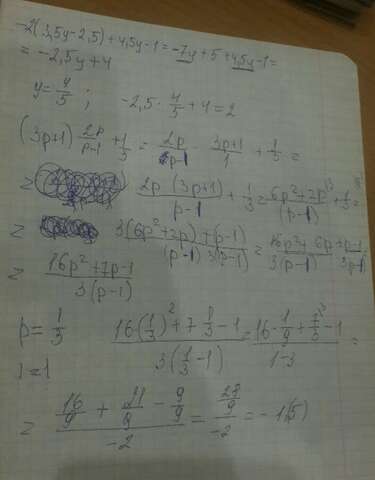 -2(3,5y-2,5)+4,5y-1=-7y+5+4,5y-1=
=-2,5y+4
y=4/5 ; -2,5·4/5+4=2
(3p+1) 2p/p-1 + 1/3 = 2p/p-1 · 3p+1/1 + 1/3 =
= 2p (3p+1)/p-1 + 1/3 = 6p²+2p/(p-1) + 1/3 =
= 3(6p²+2p)+(p-1)/(p-1) 3(p-1) = 16p²+6p+p-1/3(p-1)
= 16p²+7p-1/3(p-1)
p=1/3 16(1/3)²+7 1/3-1/3(1/3-1) = 16·1/9+7/3-1/1-3 =
= 16/9 + 21/9 - 9/9/-2 = 28/9/-2 =